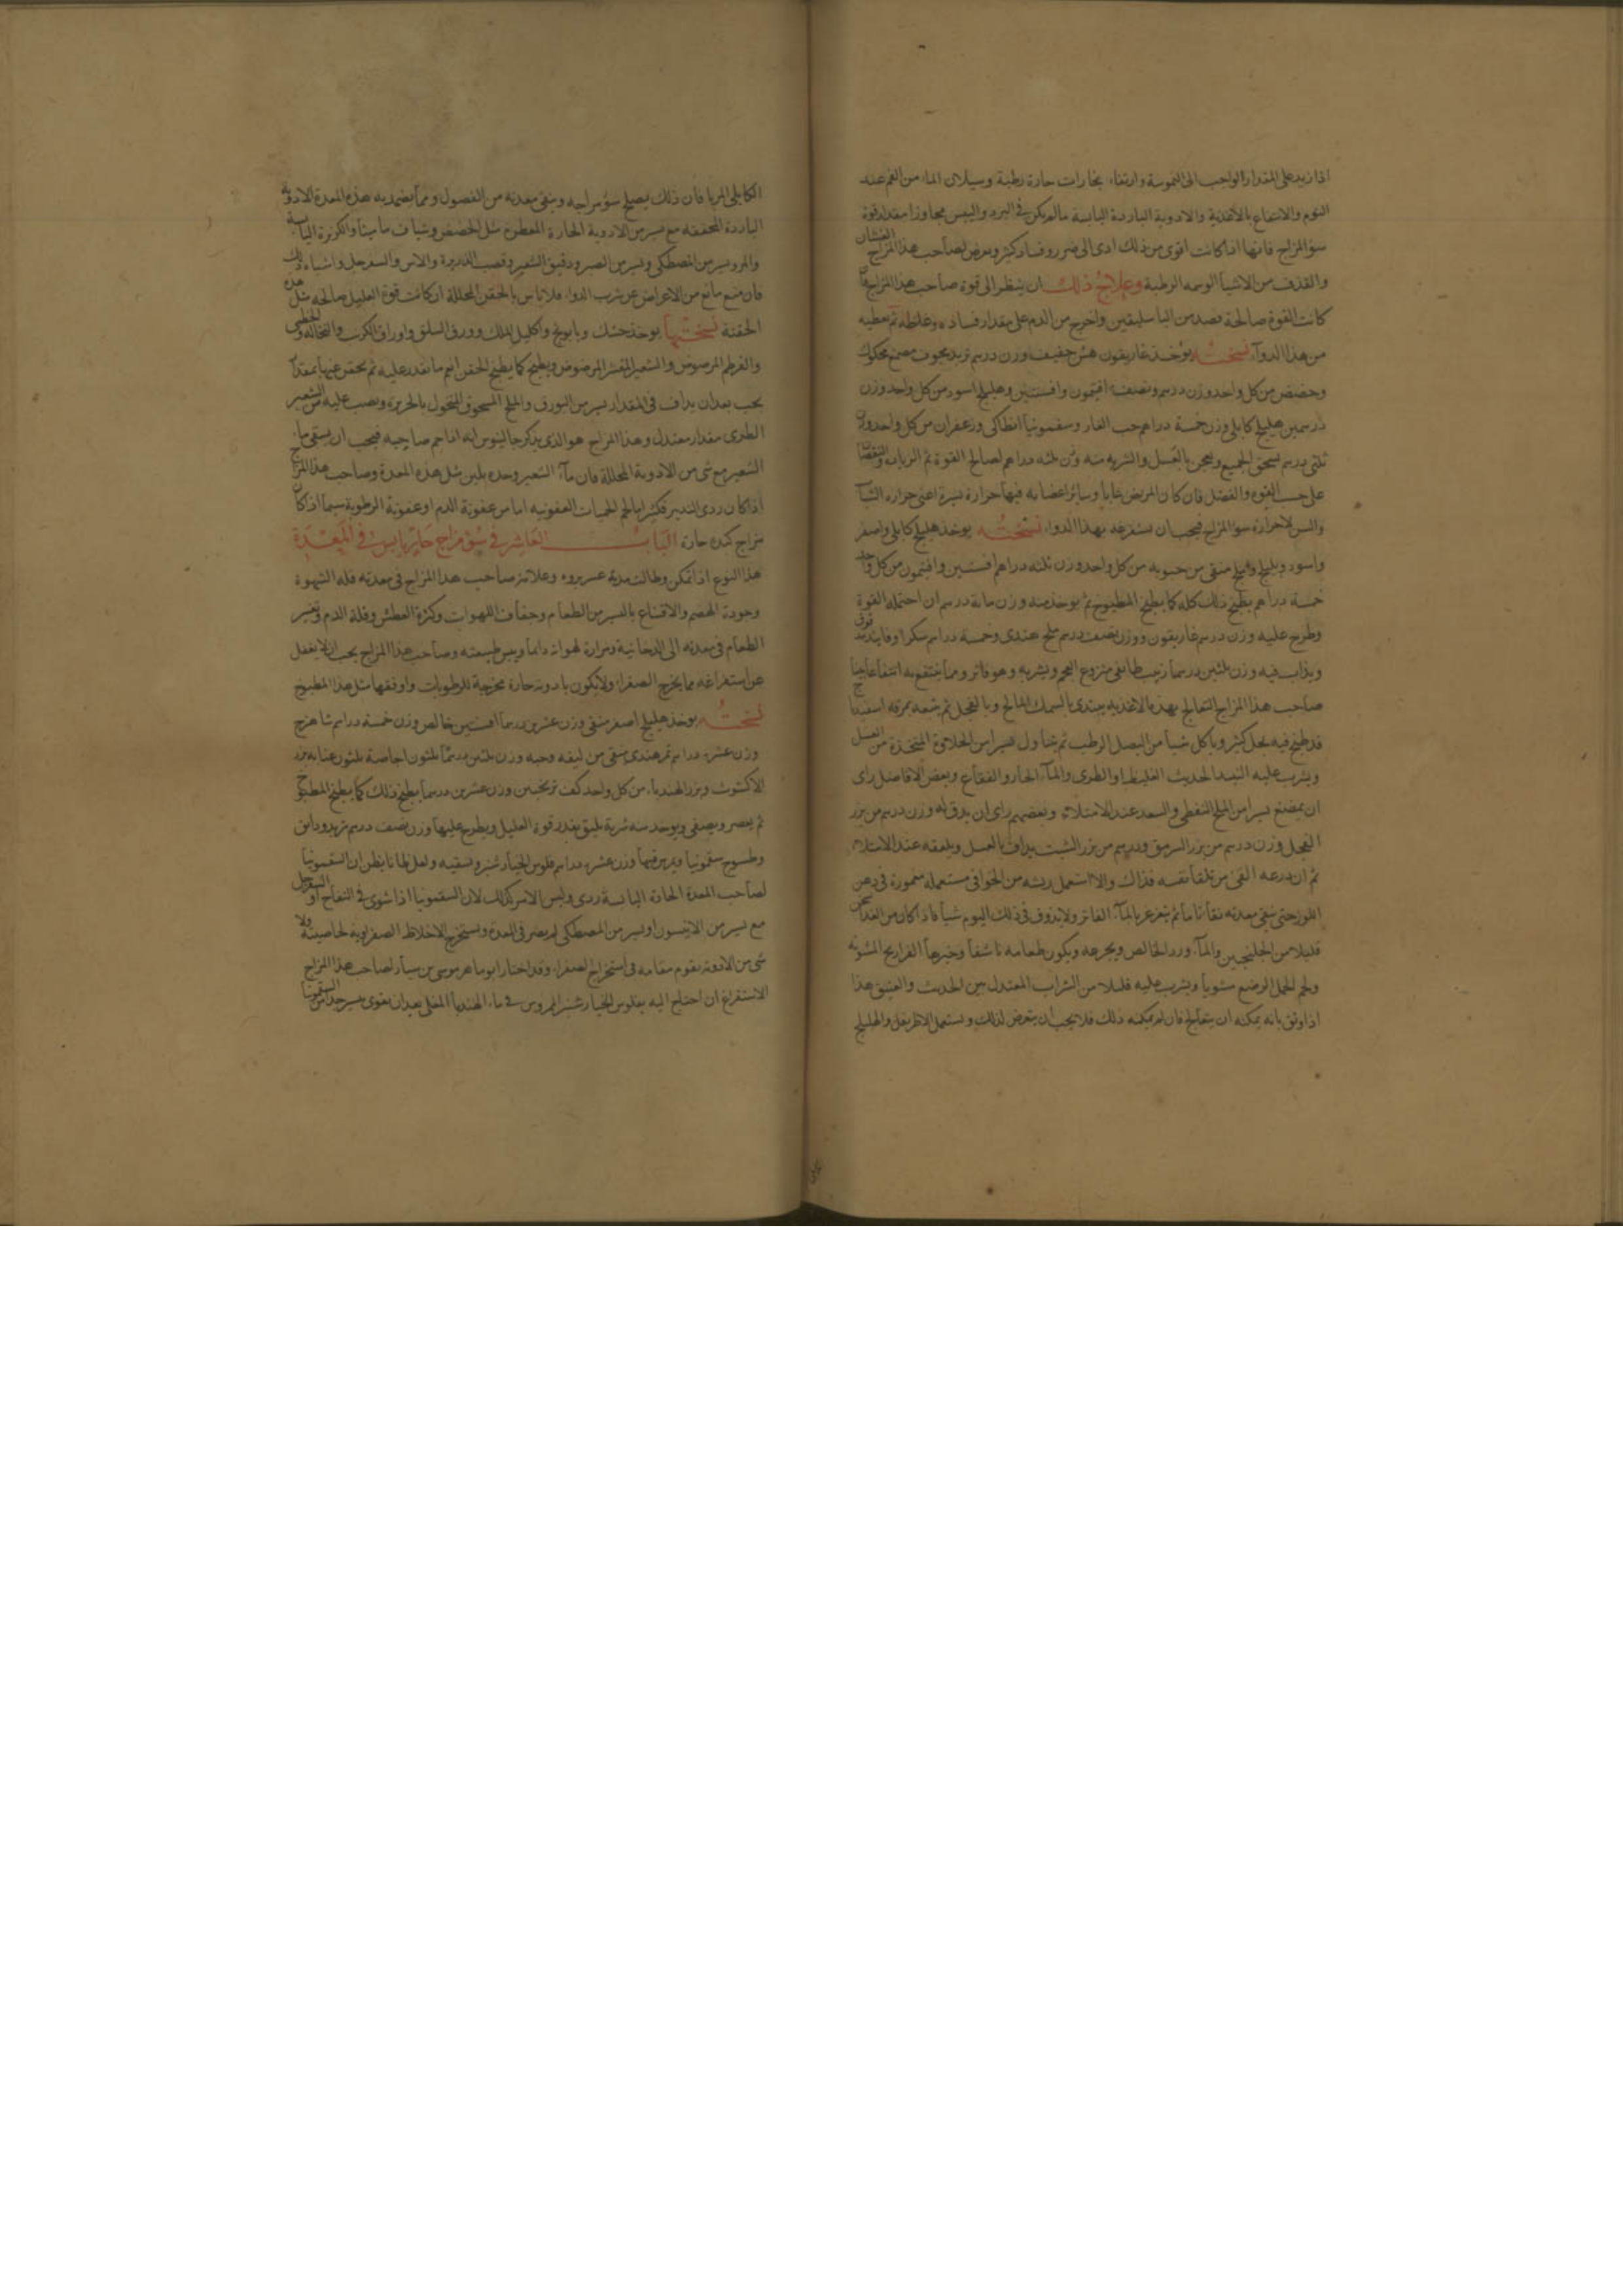 اذا زيد على المقدار الواجب الى الحموسة وارتفاء بخارات حارة رطبة وسيلان الماء من الفم عند
النوم والانتفاع بالأغذية والادوية الباردة اليابسة مالم يكن في البرد واليبس مجاوزا مقدار قوة
سؤ المزاج فانها اذا كانت اقوى من ذلك ادى الى ضرر وفساد كثير ويعرض لصاحب هذا المزاج الغشيان
والقذف من الاشيأ الوسمه الرطبة وعلاج ذلك ان ينظر الى قوة صاحب هذا المزاج فان
كانت القوة صالحة فصد من الباسليقين واخرج من الدم على مقدار فساده وغلظه ثم تعطيه
من هذا الدوآء نسخته يؤخذ غاريقون هش خفيف وزن درهم تربد مجوف مصمغ محكوك
وحضض من كل واحد وزن درهم ونصف افتيمون وافسنتين وهليلج اسود من كل واحد وزن
درهمين هليلج كابلى وزن خمسة دراهم حب الغار وسقمونيا انطاكى وزعفران من كل واحد وزن
ثلثى درهم يسحق الجميع ويعجن بالعسل والشربه منه وزن ثلثه دراهم لصالح القوة ثم الزيادة والنقصان
على حسب القوه والفضل فان كان المريض شابا وسائر اعضايه فيها حرارة نيرة اعنى حرارة الشباب
والسن لا حرارة سوء المزاج فيجب ان تستفرغه بهذا الدواء نسخته يوخذ هليلج كابلى واصفر
واسود وبليلج واملج منقى من حبوبه من كل واحد وزن ثلثه دراهم افسنتين وافتيمون من كل واحد
خمسة دراهم يطبخ ذلك كله كما يطبخ المطبوخ ثم يوخذ منه وزن مائة درهم ان احتمله القوة
وطرح عليه وزن درهم غاريقون ووزن نصف درهم ملح هندى وخمسة دراهم سكرا وفانيد
ويذاب فيه وزن ثلثين درهما زبيب طايفى منزوع العجم ويشربه وهو فاتر ومما ينتفع به انتفاعا بينا
صاحب هذا المزاج التعالج بهذه الاغذيه يبتدى بالسمك المالح وبالفجل ثم يتبعه بمرقه اسفيداج
قد طبخ فيه بصل كثير وياكل شيأ من البصل الرطب ثم يتناول يسيرا من الحلاوة المتخذة من العسل
ويشرب عليه النبيذ الحديث الغليظ او الطرى والمآء الحار والفقاع وبعض الافاضل راى
ان يمضغ يسيرا من الملح النفطى والسعد عند الامتلاء وبعضهم راى ان يدق له وزن درهم من بزر
الفجل وزن درهم من بزر السرمق ودرهم من بزر الشبت يداف بالعسل ويلعقه عند الامتلاء
ثم ان ذرعه القئ من تلقأ نفسه فذاك والا استعمل ريشه من الخوافى مستعملة مغمورة فى دهن
اللوز حتى ينقى معدته نقأ تاما ثم يتغرغر بالمآء الفاتر ولا يذوق فى ذلك اليوم شيأ فاذا كان من الغد
قليلا من الجلنجبين والمآء ورد الخالص ويجرعه ويكون طعامه ناشفا وخيرها الفراريج المشويه
ولحم الحمل الرضيع مشويا ويشرب عليه قليلا من الشراب المعتدل بين الحديث والعتيق هذا
اذا وثق بانه يمكنه ان يتعالج فان لم يمكنه ذلك فلا يجب ان يتعرض لذلك ويستعمل الاطريفل والهليلج
الكابلى المربا فان ذلك يصلح سؤ مزاجه وينقى معدته من الفضول ومما يضمد به هذه المعدة الادوية
الباردة المجففه مع يسير من الادوية الحارة المعطرة مثل الحضض وشياف ماميثا والكزبرة اليابسة
والمر ويسير من المصطكى ويسير من الصبر ودقيق الشعير وقصب الذريرة والاس والسفرجل واشباه ذلك
فان منع مانع من الاعراض عن شرب الدواء فلا باس بالحقن المحللة ان كانت قوة العليل صالحه مثل هذه
الحقنة نسختها يوخذ حسك وبابونج واكليل الملك وورق السلق واوراق الكرنب والنخاله والخطمى
والقرطم المرضوض والشعير المقشر المرضوض ويطبخ كما يطبخ الحقن ثم يحقن منها بمقدار
يجب بعد ان يداف فى المقدار يسير من البورق والملح المسحوق المنخول بالحريره ويصب عليه من الشيرج
الطرى مقدار معتدل وهذا المزاج هو الذى يذكر جالينوس انه اذا حم صاحبه فيجب ان يسقى مآء
الشعير مع شى من الادوية المحللة فان مآء الشعير وحده يلين مثل هذه المعدة وصاحب هذا المزاج
اذا كان ردى التدبير فكثيرا ما يحم الحميات العفونيه اما من عفونة الدم او عفونة الرطوبة سيما اذا كان
مزاج كبده حارة الباب العاشر في سؤ مزاج حار يابس في المعدة
هذا النوع اذا تمكن وطالت مدته عسر بروه وعلامة صاحب هذا المزاج فى معدته قلة الشهوة
وجودة الهضم والاقتناع باليسير من الطعام وجفاف اللهوات وكثرة العطش وقلة الدم وتغير
الطعام فى معدته الى الدخانية ومرارة لهواته دايما ويبس طبيعته وصاحب هذا المزاج يجب ان لا يغفل
عن استفراغه مما يخرج الصفراء ولا يكون بادوية حارة مخرجة للرطوبات واوفقها مثل هذا المطبوخ
نسخته يوخذ هليلج اصفر منقى وزن عشرين درهما افسنتين خالص وزن خمسة دراهم شاهترج
وزن عشرة دراهم تمر هندى منقى من ليفه وحبه وزن ثلثين درهما ثلثون اجاصة ثلثون عنابه بزر
الاكشوث وبزر الهندباء من كل واحد كف ترنجبين وزن عشرين درهما يطبخ ذلك كما يطبخ المطبوخ
ثم يعصر ويصفى ويوخذ منه شربة يليق بقدر قوة العليل ويطرح عليها وزن نصف درهم تربد ودانق
وطسوج سقمونيا ويمرس فيها وزن عشرة دراهم فلوس الخيارشنبر وتسقيه ولعل ظانا يظن ان السقمونيا
لصاحب المعدة الحارة اليابسة ردى وليس الامر كذلك لان السقمونيا اذا شوى فى التفاح او السفرجل
مع يسير من الانيسون او يسير من المصطكى لم يضر فى المعدة ويستخرج الاخلاط الصفراوية لخاصيته ولا
شى من الادوية يقوم مقامه فى استخراج الصفراء وقد اختار ابو ماهر موسى بن سيار لصاحب هذا المزاج
الاستفراغ ان احتاج اليه بفلوس الخيارشنبر الممروس فى ماء الهندبا المغلى بعد ان يقوى بيسير جدا من السقمونيا